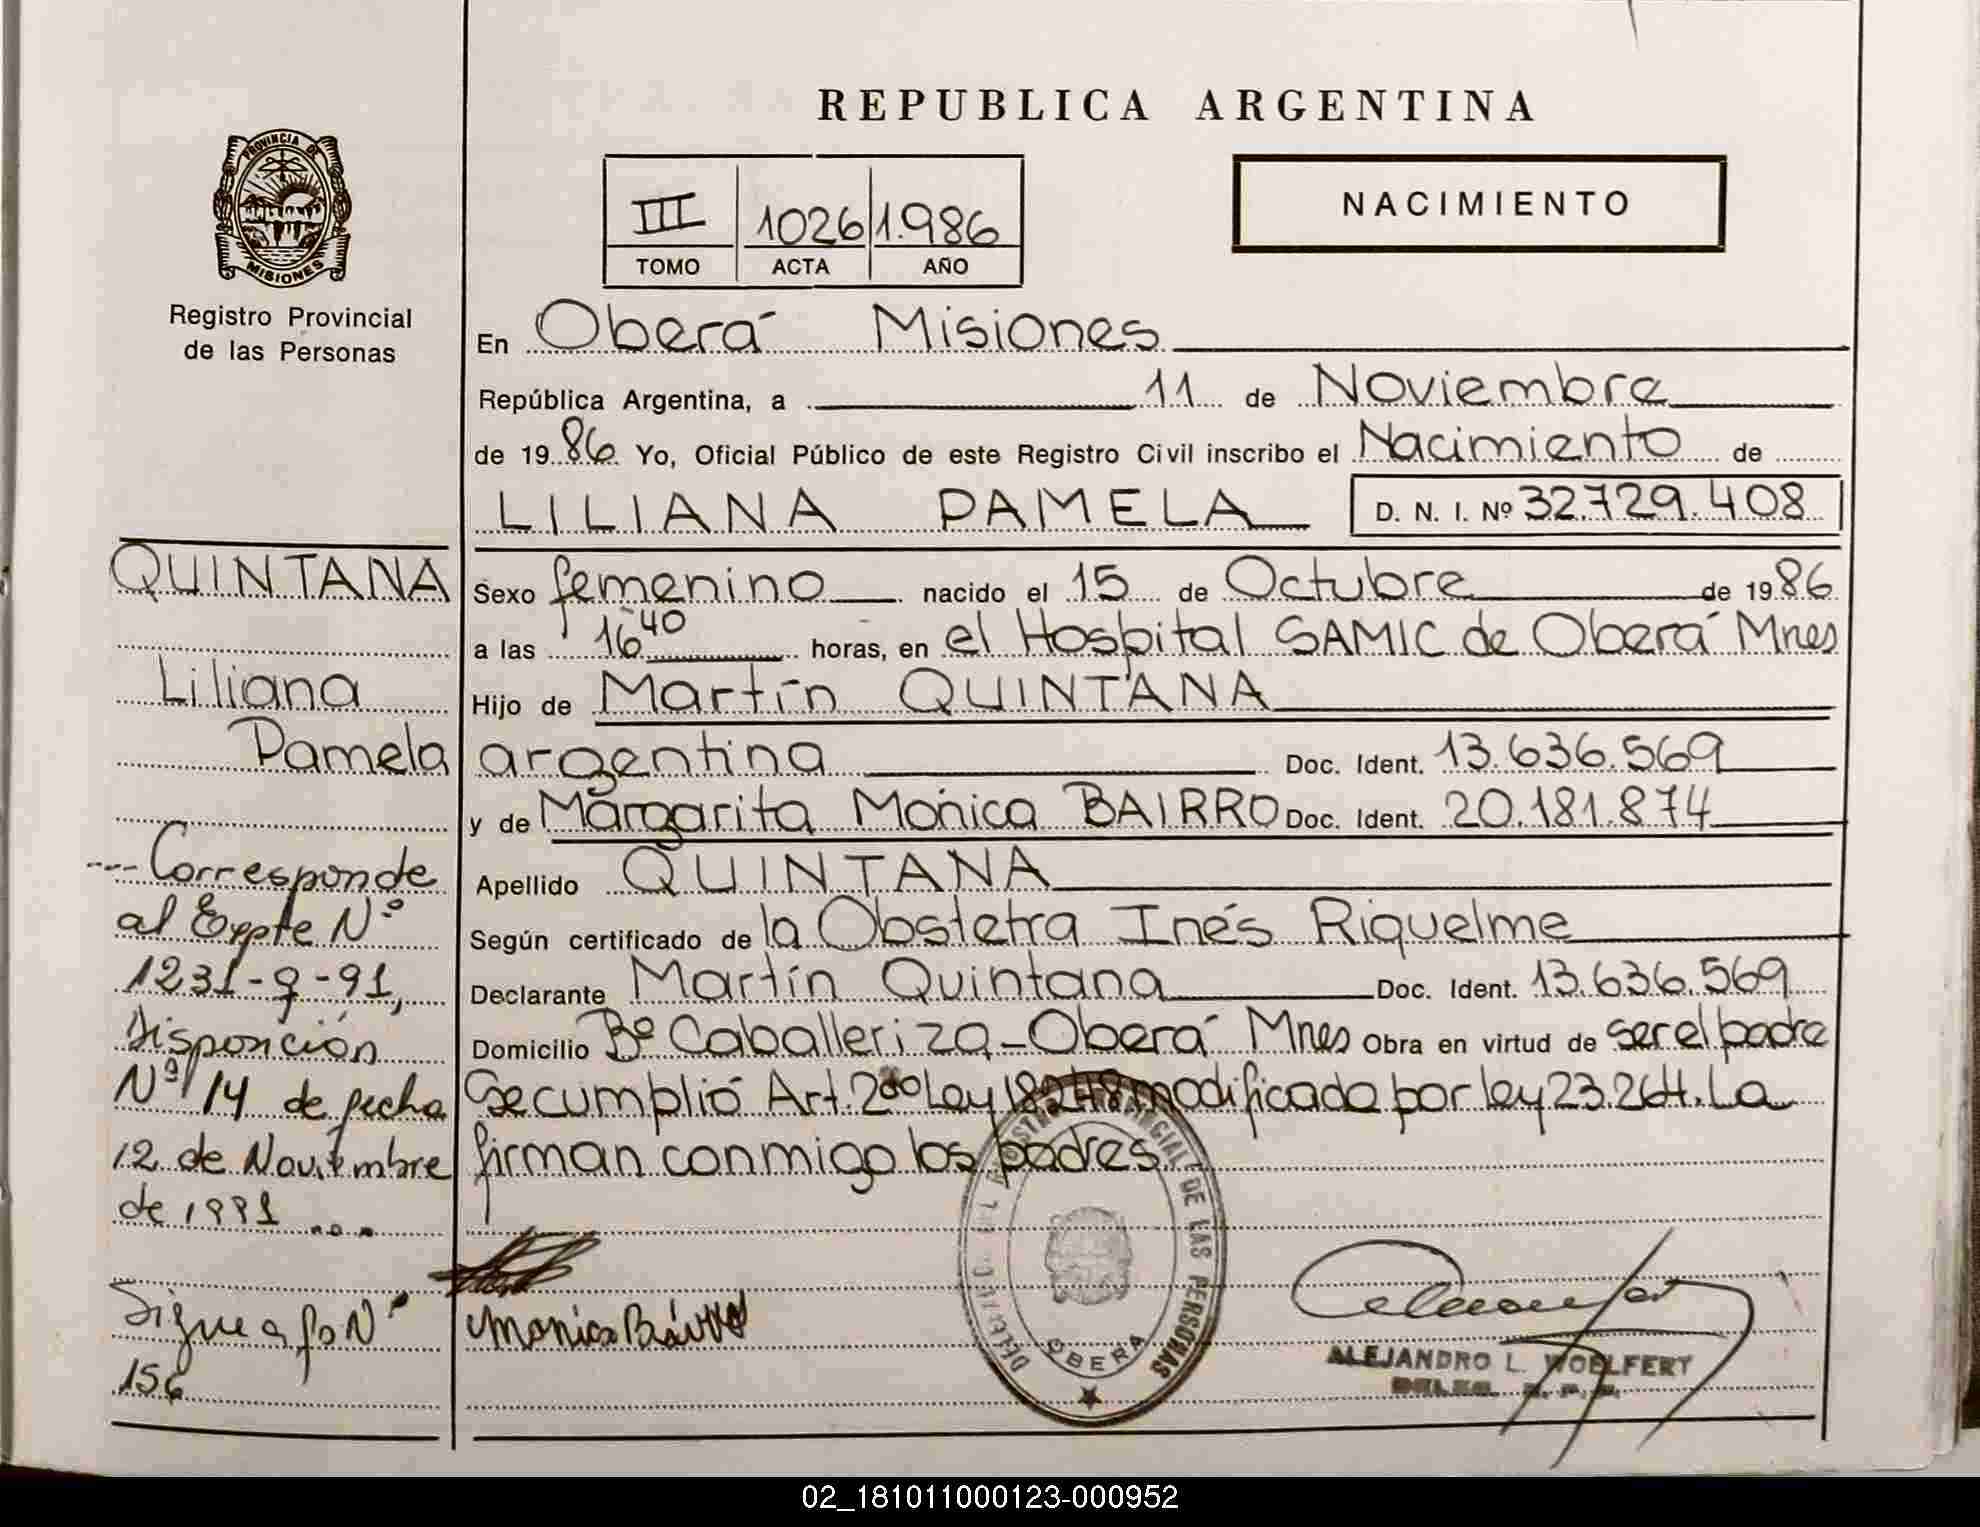 REPUBLICA ARGENTINA
PROVINCIA DE
MISIONES
Registro Provincial
de las Personas
III 1026 1.986
TOMO ACTA AÑO
NACIMIENTO
En Oberá Misiones
República Argentina, a 11 de Noviembre
de 1986 Yo, Oficial Público de este Registro Civil inscribo el Nacimiento de
LILIANA PAMELA D. N. I. Nº 32.729.408
Sexo femenino nacido el 15 de Octubre de 1986
a las 16 40 horas, en el Hospital SAMIC de Oberá Mnes
Hijo de Martín QUINTANA
argentina Doc. Ident. 13.636.569
y de Margarita Mónica BAIRRO Doc. Ident. 20.181.874
Apellido QUINTANA
Según certificado de la Obstetra Inés Riquelme
Declarante Martín Quintana Doc. Ident. 13.636.569
Domicilio Bº Caballeriza - Oberá Mnes Obra en virtud de ser el padre
Se cumplió Art. 2º Ley 18248 modificado por ley 23.264. La
firman conmigo los padres
QUINTANA
Liliana
Pamela
--- Corresponde
al Expte Nº
1231-9-91,
Disposición
Nº 14 de fecha
12 de Noviembre
de 1991 ...
Sigue a fo Nº
156
Monica
DE LAS PERSONAS
OBERA
ALEJANDRO L. WOELFERT
02_181011000123-000952